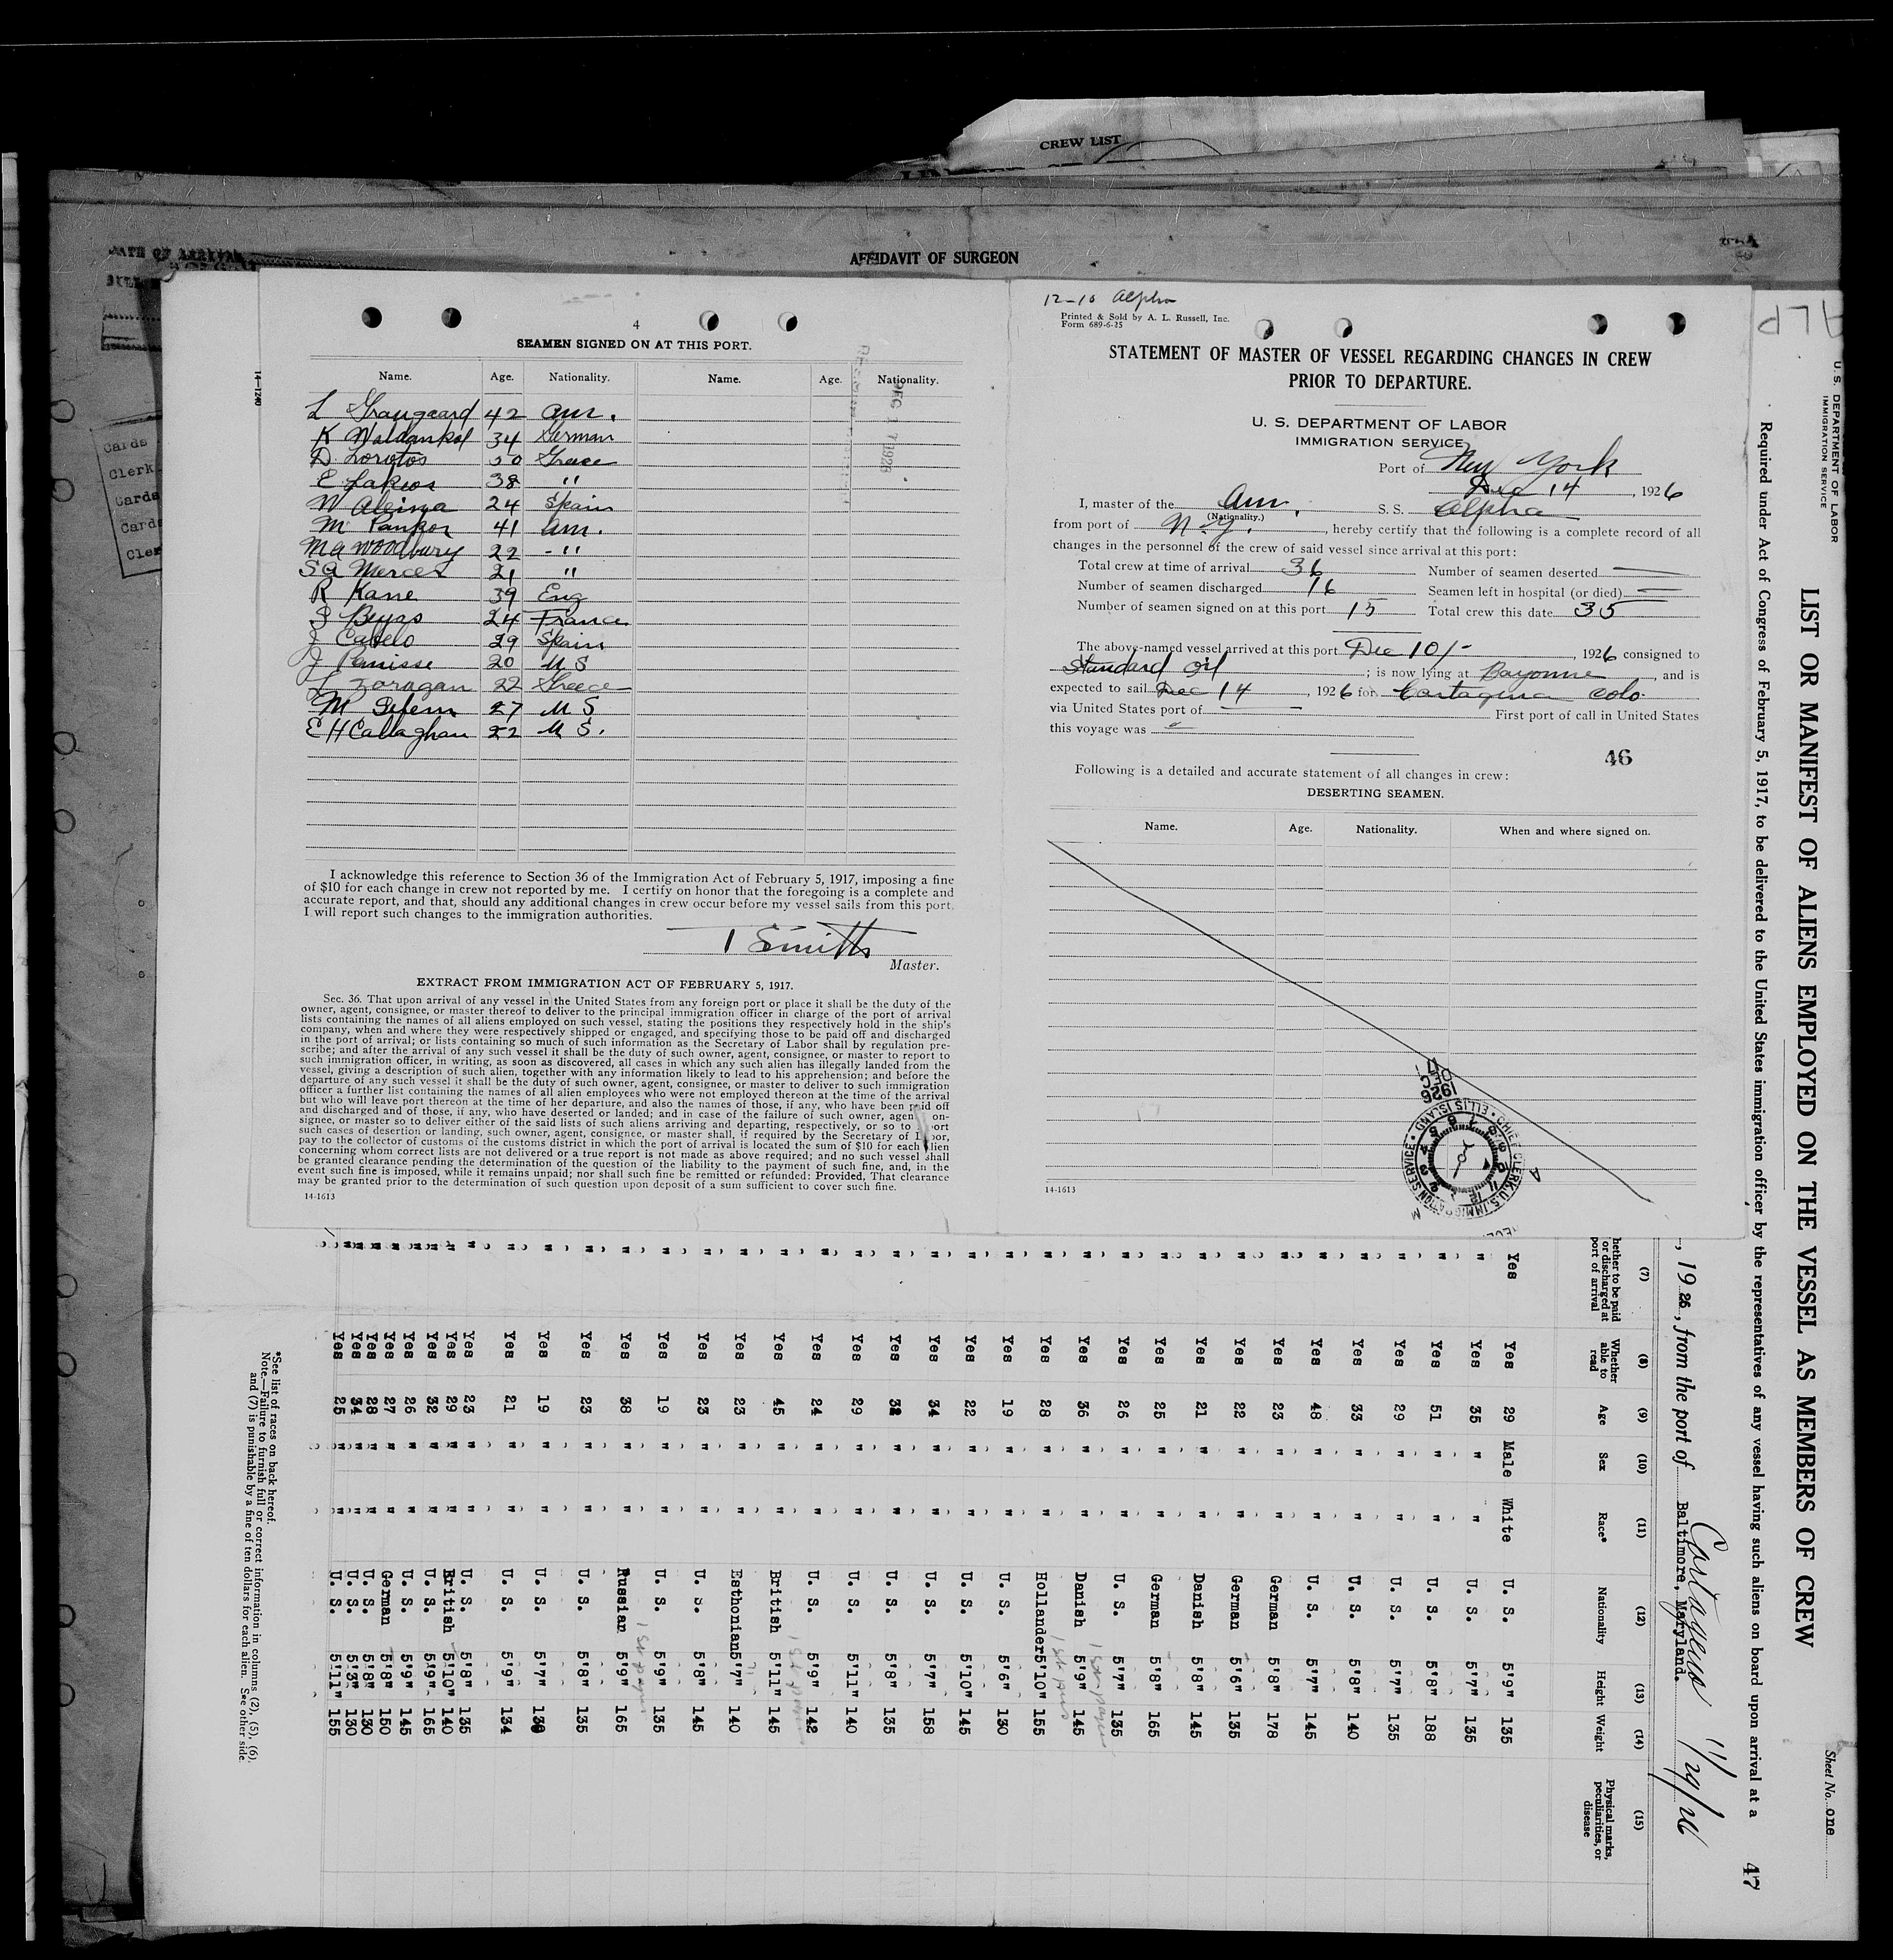 CREW LIST
AFFIDAVIT OF SURGEON
Cards
Clerk
Cards
Cards
Cler
4
SEAMEN SIGNED ON AT THIS PORT.
14—1240
Name. Age. Nationality. Name. Age. Nationality.
L 42 Am.
K 34 German
D. Lorotos 30 Greece
E Lakios 38 "
24 Spain
M 41 Am.
MA Woodbury 22 - "
SA Mercer 21 "
R Kane 39 Eng
24 France
J Cabelo 29 Spain
J Panisse 20 U S
22 Greece
M 27 U S
E H Callaghan 22 U S.
DEC 17 1926
I acknowledge this reference to Section 36 of the Immigration Act of February 5, 1917, imposing a fine
of $10 for each change in crew not reported by me. I certify on honor that the foregoing is a complete and
accurate report, and that, should any additional changes in crew occur before my vessel sails from this port,
I will report such changes to the immigration authorities.
T Smith
Master.
EXTRACT FROM IMMIGRATION ACT OF FEBRUARY 5, 1917.
Sec. 36. That upon arrival of any vessel in the United States from any foreign port or place it shall be the duty of the
owner, agent, consignee, or master thereof to deliver to the principal immigration officer in charge of the port of arrival
lists containing the names of all aliens employed on such vessel, stating the positions they respectively hold in the ship's
company, when and where they were respectively shipped or engaged, and specifying those to be paid off and discharged
in the port of arrival; or lists containing so much of such information as the Secretary of Labor shall by regulation pre-
scribe; and after the arrival of any such vessel it shall be the duty of such owner, agent, consignee, or master to report to
such immigration officer, in writing, as soon as discovered, all cases in which any such alien has illegally landed from the
vessel, giving a description of such alien, together with any information likely to lead to his apprehension; and before the
departure of any such vessel it shall be the duty of such owner, agent, consignee, or master to deliver to such immigration
officer a further list containing the names of all alien employees who were not employed thereon at the time of the arrival
but who will leave port thereon at the time of her departure, and also the names of those, if any, who have been paid off
and discharged and of those, if any, who have deserted or landed; and in case of the failure of such owner, agen on-
signee, or master so to deliver either of the said lists of such aliens arriving and departing, respectively, or so to ort
such cases of desertion or landing, such owner, agent, consignee, or master shall, if required by the Secretary of L or,
pay to the collector of customs of the customs district in which the port of arrival is located the sum of $10 for each lien
concerning whom correct lists are not delivered or a true report is not made as above required; and no such vessel shall
be granted clearance pending the determination of the question of the liability to the payment of such fine, and, in the
event such fine is imposed, while it remains unpaid; nor shall such fine be remitted or refunded: Provided, That clearance
may be granted prior to the determination of such question upon deposit of a sum sufficient to cover such fine.
14-1613
12-10 Alpha
Printed & Sold by A. L. Russell, Inc.
Form 689-6-25
STATEMENT OF MASTER OF VESSEL REGARDING CHANGES IN CREW
PRIOR TO DEPARTURE.
U. S. DEPARTMENT OF LABOR
IMMIGRATION SERVICE
Port of New York
Dec 14, 1926
I, master of the Am. S. S. Alpha
(Nationality.)
from port of N.Y., hereby certify that the following is a complete record of all
changes in the personnel of the crew of said vessel since arrival at this port:
Total crew at time of arrival 36 Number of seamen deserted —
Number of seamen discharged 16 Seamen left in hospital (or died) —
Number of seamen signed on at this port 15 Total crew this date 35
The above-named vessel arrived at this port Dec 10/-, 1926 consigned to
Standard Oil; is now lying at Bayonne, and is
expected to sail Dec 14, 1926 for Cartagena Colo.
via United States port of — First port of call in United States
this voyage was
46
Following is a detailed and accurate statement of all changes in crew:
DESERTING SEAMEN.
Name. Age. Nationality. When and where signed on.
DEC 17 1926
CHIEF CLERK, U.S. IMMIGRATION SERVICE • ELLIS ISLAND •
14-1613
ALP
U. S. DEPARTMENT OF LABOR
IMMIGRATION SERVICE
Sheet No. one
LIST OR MANIFEST OF ALIENS EMPLOYED ON THE VESSEL AS MEMBERS OF CREW
Required under Act of Congress of February 5, 1917, to be delivered to the United States immigration officer by the representatives of any vessel having such aliens on board upon arrival at a
47
, 1926, from the port of Baltimore, Maryland. Cartagena 11/29/26
(7) (8) (9) (10) (11) (12) (13) (14) (15)
hether to be paid or discharged at port of arrival
Whether able to read
Age
Sex
Race*
Nationality
Height
Weight
Physical marks, peculiarities, or disease
Yes Yes 29 Male White U. S. 5'9" 135
" Yes 35 " " U. S. 5'7" 135
" Yes 51 " " U. S. 5'8" 188
" Yes 29 " " U. S. 5'7" 135
" Yes 33 " " U. S. 5'8" 140
" Yes 48 " " U. S. 5'7" 145
" Yes 23 " " German 5'8" 178
" Yes 22 " " German 5'6" 135
" Yes 21 " " Danish 5'8" 145
" Yes 25 " " German 5'8" 165
" Yes 26 " " U. S. 5'7" 135
" Yes 36 " " Danish 5'9" 145
" Yes 28 " " Hollander 5'10" 155
" Yes 19 " " U. S. 5'6" 130
" Yes 22 " " U. S. 5'10" 145
" Yes 34 " " U. S. 5'7" 158
" Yes 32 " " U. S. 5'8" 135
" Yes 29 " " U. S. 5'11" 140
" Yes 24 " " U. S. 5'9" 142
" Yes 45 " " British 5'11" 145
" Yes 23 " " Esthonian 5'7" 140
" Yes 23 " " U. S. 5'8" 145
" Yes 19 " " U. S. 5'9" 135
" Yes 38 " " Russian 5'9" 165
" Yes 23 " " U. S. 5'8" 135
" Yes 19 " " U. S. 5'7"
" Yes 21 " " U. S. 5'9" 134
" Yes 23 " " U. S. 5'8" 135
" Yes 29 " " British 5'10" 140
" Yes 32 " " U. S. 5'9" 165
" Yes 26 " " U. S. 5'9" 145
" Yes 27 " " German 5'8" 150
" Yes 28 " " U. S. 5'8" 130
" Yes 34 " " U. S. 5'9" 130
" Yes 25 " " U. S. 5'11" 155
*See list of races on back hereof.
Note.—Failure to furnish full or correct information in columns (2), (5), (6),
and (7) is punishable by a fine of ten dollars for each alien. See other side.